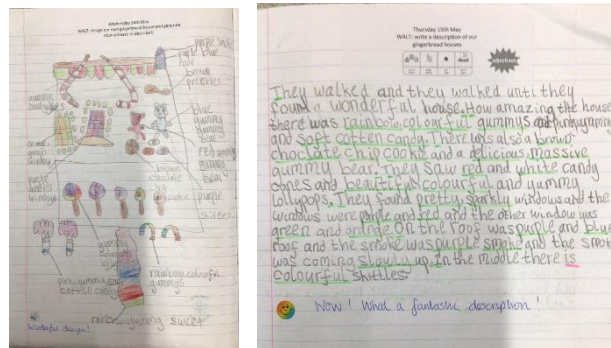 Wednesday 14th May
purple smoke
purple blue
roof
brown
blue
gummy
bear
red gummy
bear
brown
choclate
chip
cookie
purple
skittles
purple
window
gummy
rainbow colourful
gummys
pink gummy soft
cotton candy
rainbow gummy sweet
Wonderful design!
Thursday 15th May
WALT: write a description of our
gingerbread houses
adjectives
They walked and they walked until they
found a wonderful house. How amazing the house
there was rainbow, colourful gummys and
and soft cotten candy. There was also a brown
choclate chip cookie and a delicious, massive
gummy bear. They saw red and white candy
canes and beautiful colourful and yummy
lollypops. They found pretty, sparkly windows and the
windows were purple and red and the other window was
green and orange. On the roof was purple and blue
roof and the smoke was purple smoke and the smoke
was coming slowly up. In the middle there is
colourful skittles.
Wow! What a fantastic description!